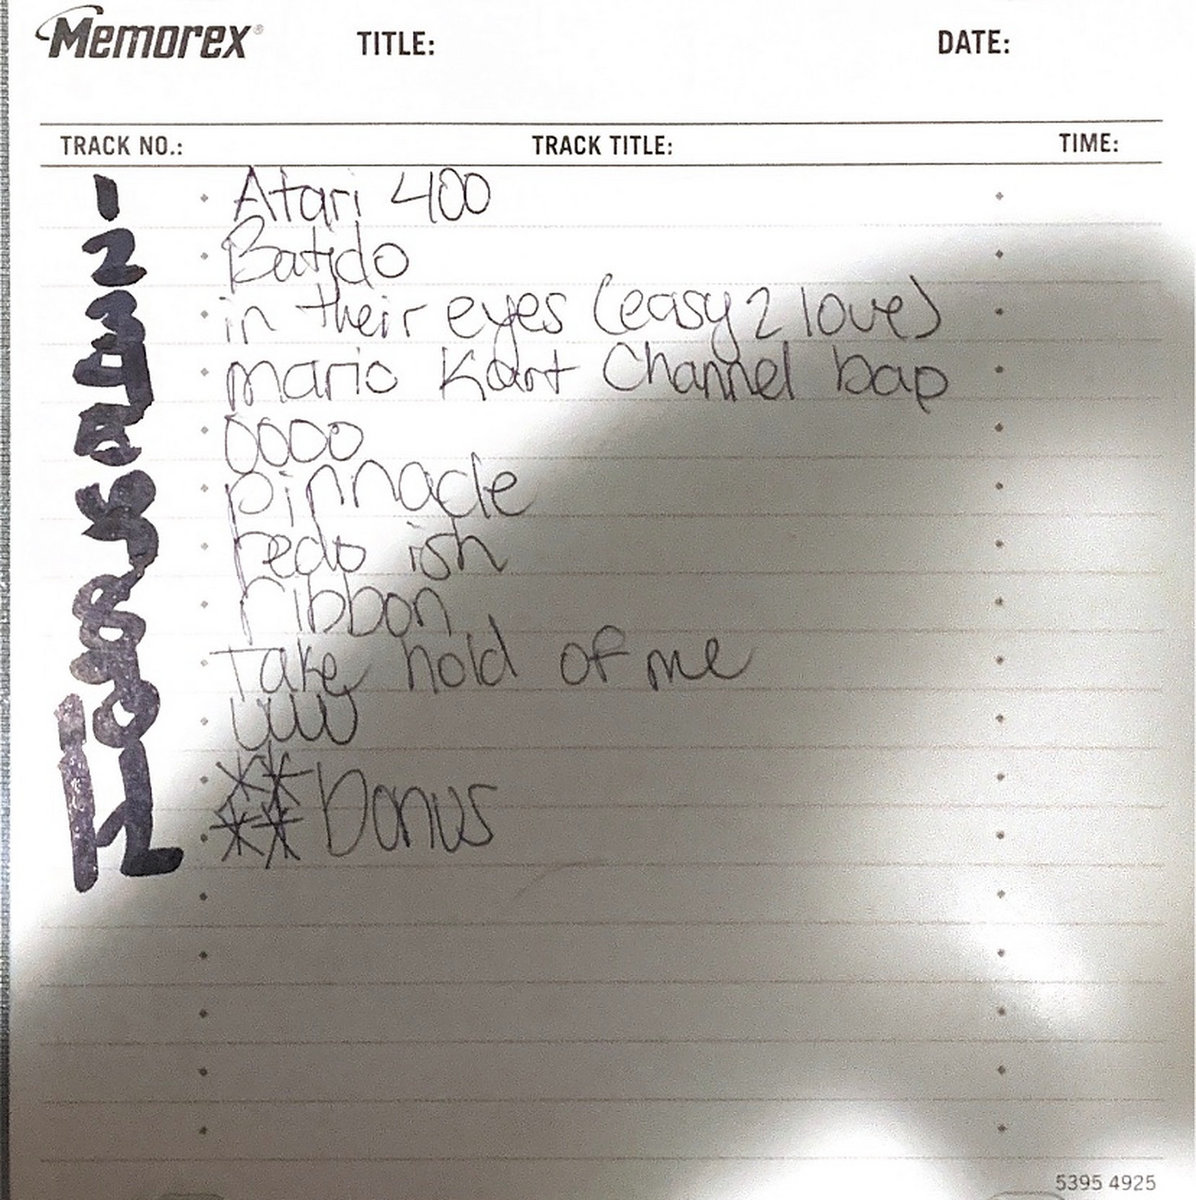 Memorex® TITLE: DATE:
TRACK NO.: TRACK TITLE: TIME:
1 Atari 400
2 Batido
3 in their eyes (easy 2 love)
4 mario Kart Channel bap
oooo
pinnacle
redo ish
8 ribbon
Take hold of me
10 uuu
** bonus
**
5395 4925